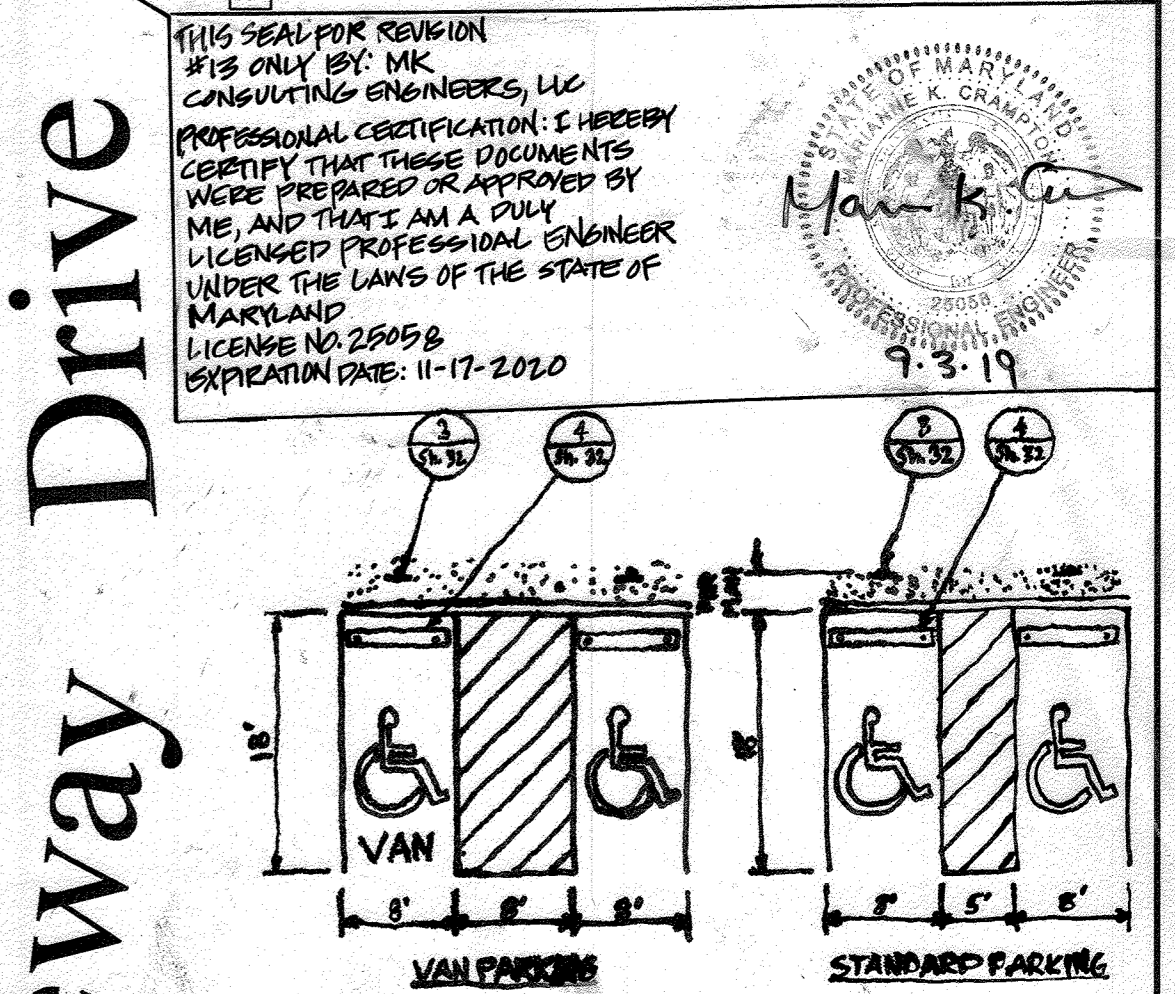 THIS SEAL FOR REVISION
#13 ONLY BY: MK
CONSULTING ENGINEERS, LLC
PROFESSIONAL CERTIFICATION: I HEREBY
CERTIFY THAT THESE DOCUMENTS
WERE PREPARED OR APPROVED BY
ME, AND THAT I AM A DULY
LICENSED PROFESSIOAL ENGINEER
UNDER THE LAWS OF THE STATE OF
MARYLAND
LICENSE NO. 25058
EXPIRATION DATE: 11-17-2020
STATE OF MARYLAND
MARIANNE K. CRAMPTON
25058
PROFESSIONAL ENGINEER
9.3.19
Drive
way
3
Sh. 32
4
Sh. 32
3
Sh. 32
4
Sh. 32
PER
PLAN
18'
VAN
8'
8'
8'
VAN PARKING
8'
5'
8'
STANDARD PARKING